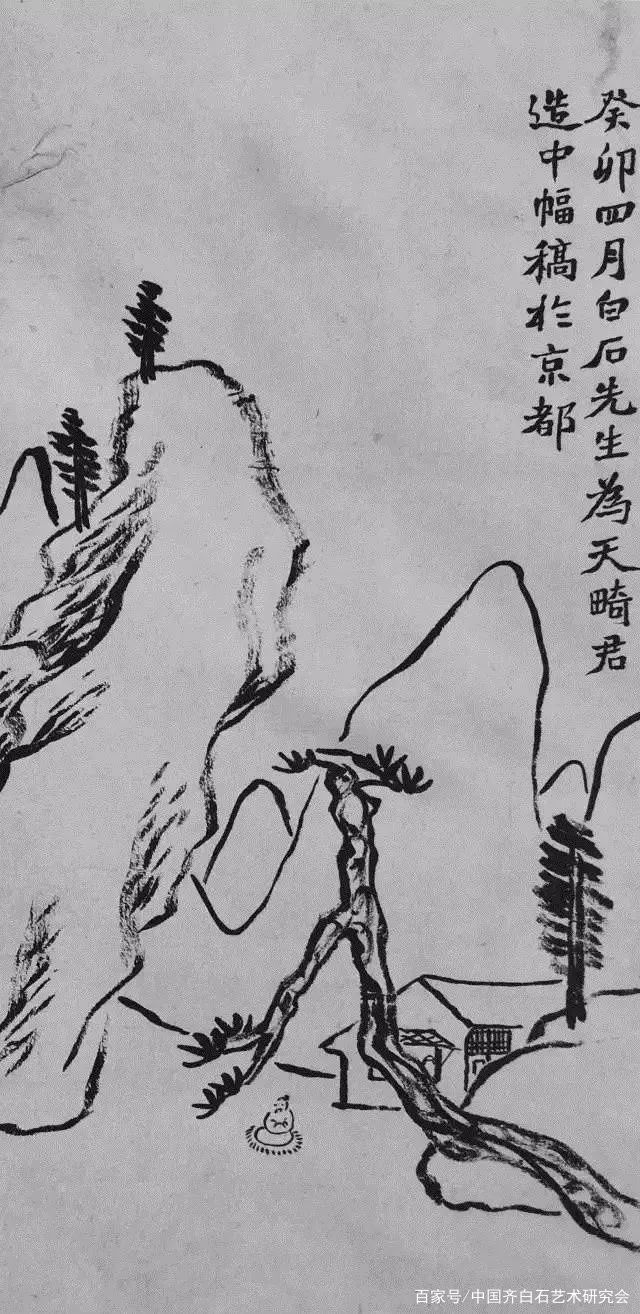 癸卯四月白石先生為天畸君
造中幅稿於京都
百家号/中国齐白石艺术研究会